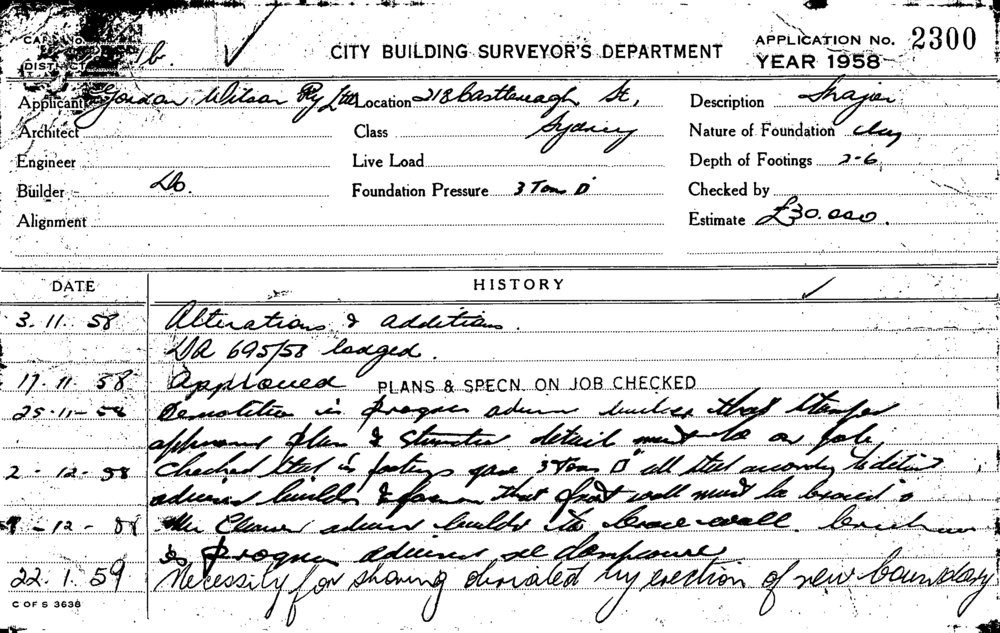 CARD NO.
DISTRICT 1b.
CITY BUILDING SURVEYOR'S DEPARTMENT
APPLICATION No. 2300
YEAR 1958
Applicant Gordon Wilson Pty Ltd Location 218 Castlereagh St,
Sydney
Description
Architect
Class
Nature of Foundation Clay
Engineer
Live Load
Depth of Footings 2-6
Builder Do.
Foundation Pressure 3 Tons □'
Checked by
Alignment
Estimate £30.000.
DATE
HISTORY
3.11.58 Alterations & additions.
DA 695/58 lodged.
17.11.58 Approved PLANS & SPECN. ON JOB CHECKED
25-11-58 Demolition in progress that
plan & detail must be on job.
2-12-58 Checked steel in footings 3 Tons □' all steel
builder & that front wall must be braced
-12-58 Mr builder to brace wall.
in progress
22.1.59 Necessity for shoring obviated by erection of new boundary
C OF S 3638